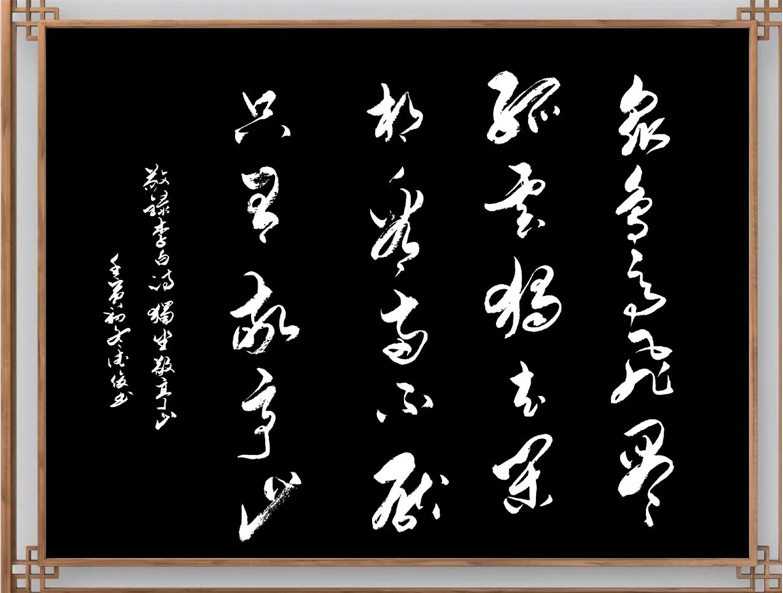 众鸟高飞尽
孤云独去闲
相看两不厌
只有敬亭山
敬録李白诗獨坐敬亭山
壬寅初冬德俊书